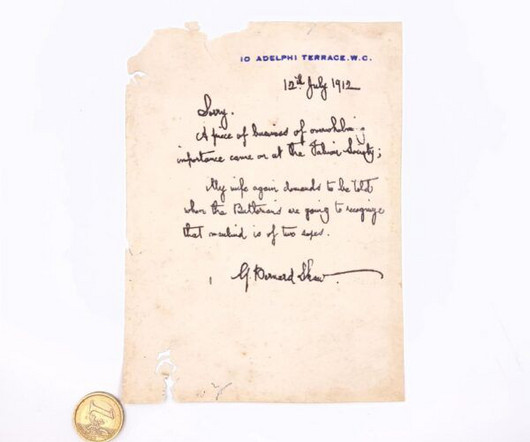 10 ADELPHI TERRACE. W.C.
12th July 1912
Sorry.
A piece of business of overwhelming
importance came on at the Fabian Society;
My wife again demands to be told
when the are going to recognize
that mankind is of two sexes.
G. Bernard Shaw
1